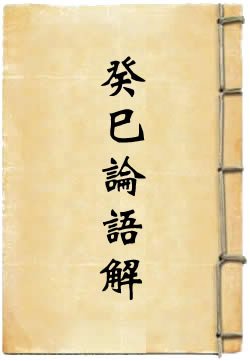 癸巳論語解